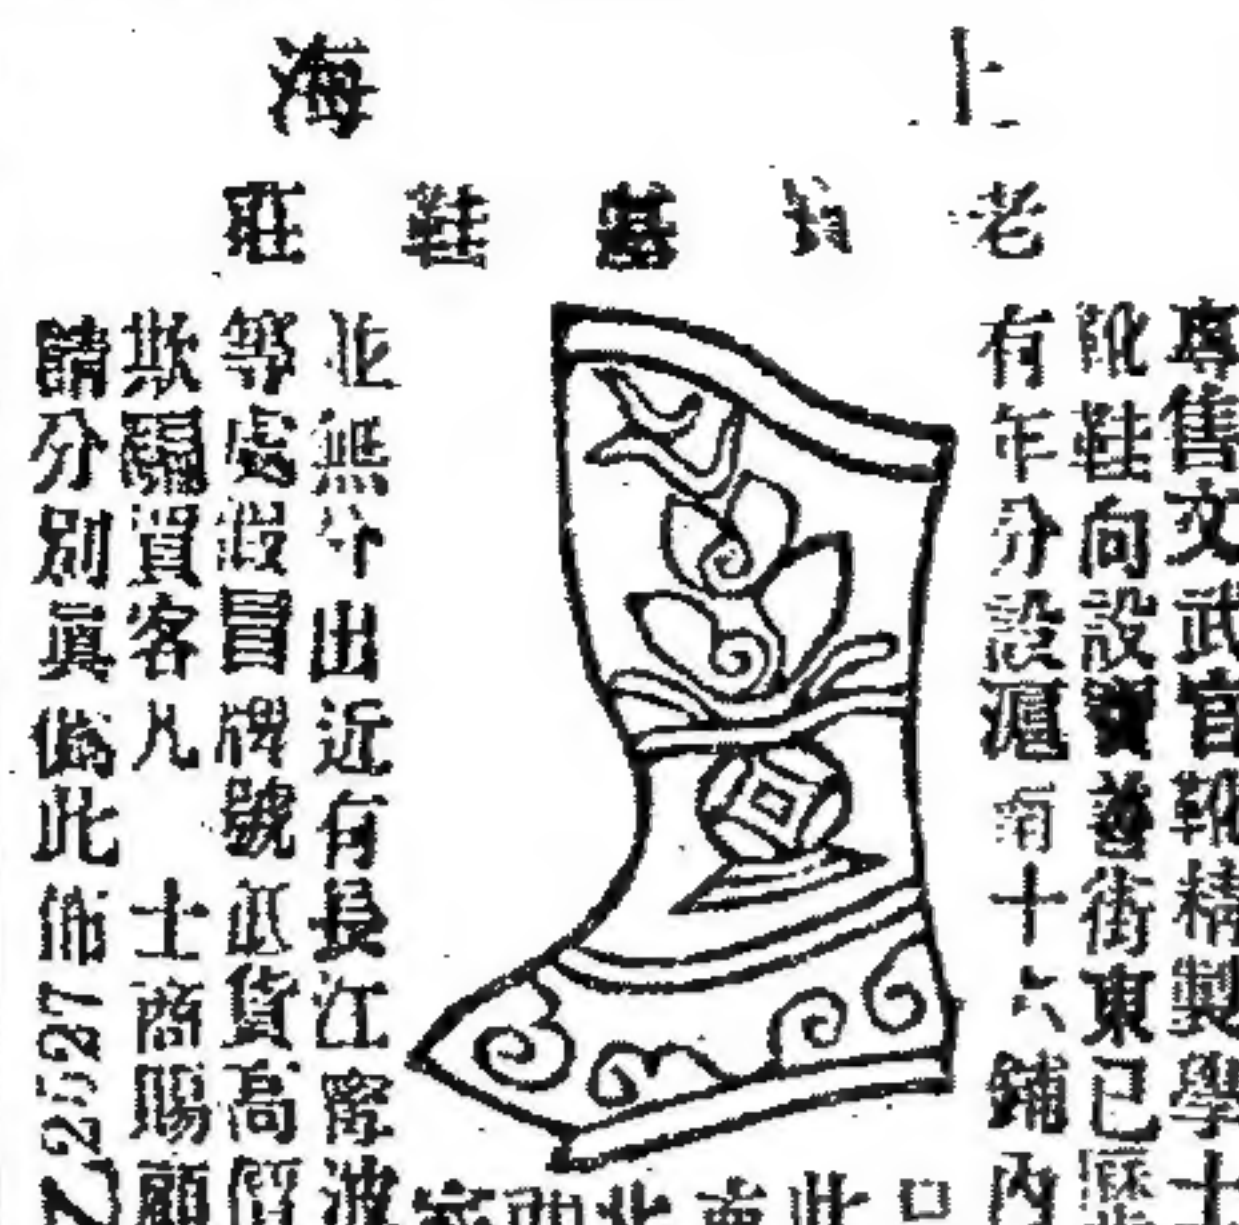 上海
老 鞋莊
專售文武官靴精製學士
靴鞋向設寶善街東已歷
有年分設滬南十六鋪內
此 北西家
並無分出近有長江甯波
等處假冒牌號低貨高價
欺騙買客凡 士商賜顧
請分別真偽此佈
Z2527